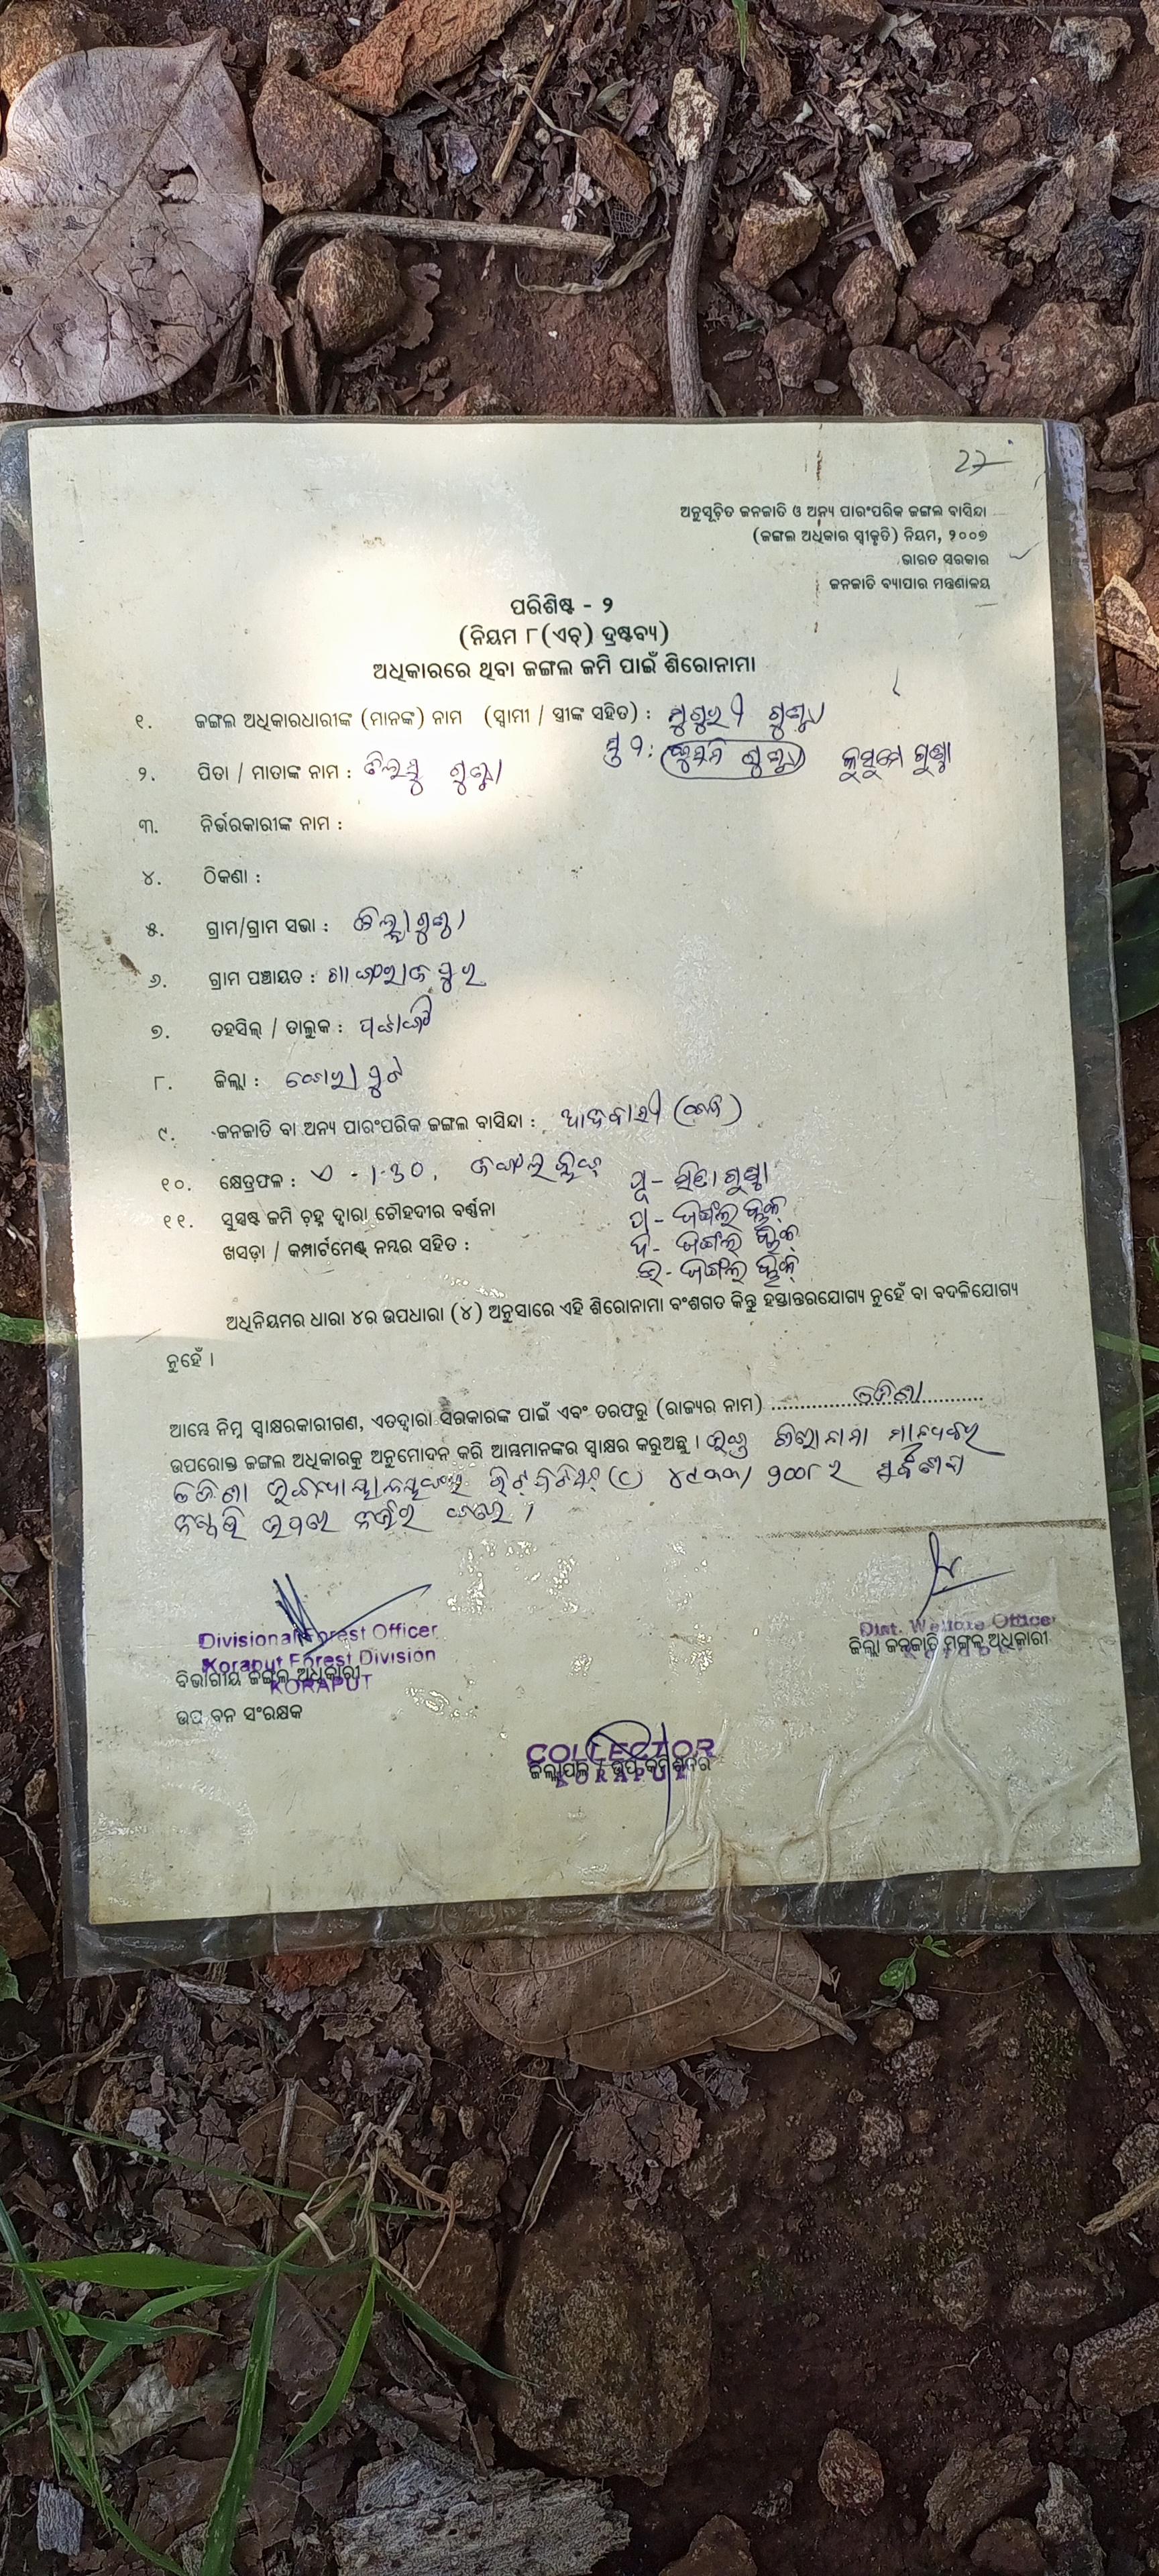 27
ଅନୁସୂଚିତ ଜନଜାତି ଓ ଅନ୍ୟ ପାରଂପରିକ ଜଙ୍ଗଲ ବାସିନ୍ଦା
(ଜଙ୍ଗଲ ଅଧିକାର ସ୍ୱୀକୃତି) ନିୟମ, ୨୦୦୭
ଭାରତ ସରକାର
ଜନଜାତି ବ୍ୟାପାର ମନ୍ତ୍ରଣାଳୟ
ପରିଶିଷ୍ଟ - ୨
(ନିୟମ ୮(ଏଚ୍) ଦ୍ରଷ୍ଟବ୍ୟ)
ଅଧିକାରରେ ଥିବା ଜଙ୍ଗଲ ଜମି ପାଇଁ ଶିରୋନାମା
୧. ଜଙ୍ଗଲ ଅଧିକାରଧାରୀଙ୍କ (ମାନଙ୍କ) ନାମ (ସ୍ୱାମୀ / ସ୍ତ୍ରୀଙ୍କ ସହିତ) : ଗୁଣ୍ଠା
କୁସୁମେ ଗୁଣ୍ଠା
୨. ପିତା / ମାତାଙ୍କ ନାମ : ଗୁଣ୍ଠା
୩. ନିର୍ଭରକାରୀଙ୍କ ନାମ :
୪. ଠିକଣା :
୫. ଗ୍ରାମ/ଗ୍ରାମ ସଭା :
୬. ଗ୍ରାମ ପଞ୍ଚାୟତ :
୭. ତହସିଲ୍ / ତାଲୁକ : ପଟାଙ୍ଗୀ
୮. ଜିଲ୍ଲା : କୋରାପୁଟ
୯. ଜନଜାତି ବା ଅନ୍ୟ ପାରଂପରିକ ଜଙ୍ଗଲ ବାସିନ୍ଦା : ଆଦିବାସୀ
୧୦. କ୍ଷେତ୍ରଫଳ : ଏ - 1.30. ଜଙ୍ଗଲ ବ୍ଲକ୍
ପୂ - ଗୁଣ୍ଠା
୧୧. ସୁସ୍ପଷ୍ଟ ଜମି ଚ଼ହ୍ନ ଦ୍ୱାରା ଚୌହଦୀର ବର୍ଣ୍ଣନା
ପ - ଜଙ୍ଗଲ ବ୍ଲକ୍
ଖସଡ଼ା / କମ୍ପାର୍ଟମେଣ୍ଟ ନମ୍ବର ସହିତ :
ଦ - ଜଙ୍ଗଲ ବ୍ଲକ୍
ଉ - ଜଙ୍ଗଲ ବ୍ଲକ୍
ଅଧିନିୟମର ଧାରା ୪ର ଉପଧାରା (୪) ଅନୁସାରେ ଏହି ଶିରୋନାମା ବଂଶଗତ କିନ୍ତୁ ହସ୍ତାନ୍ତରଯୋଗ୍ୟ ନୁହେଁ ବା ବଦଳିଯୋଗ୍ୟ
ନୁହେଁ ।
ଆମ୍ଭେ ନିମ୍ନ ସ୍ୱାକ୍ଷରକାରୀଗଣ, ଏତଦ୍ୱାରା ସରକାରଙ୍କ ପାଇଁ ଏବଂ ତରଫରୁ (ରାଜ୍ୟର ନାମ) ଓଡିଶା
ଉପରୋକ୍ତ ଜଙ୍ଗଲ ଅଧିକାରକୁ ଅନୁମୋଦନ କରି ଆମ୍ଭମାନଙ୍କର ସ୍ୱାକ୍ଷର କରୁଅଛୁ ।
ଓଡିଶା (C) ୪୯୩୩/୨୦୦୮ ର
ଉପରେ ନିର୍ଭର କରେ ।
Divisional Forest Officer
Koraput Forest Division
KORAPUT
ବିଭାଗୀୟ ଜଙ୍ଗଲ ଅଧିକାରୀ
ଉପ ବନ ସଂରକ୍ଷକ
Dist. Welfare Officer
ଜିଲ୍ଲା ଜନଜାତି ମଙ୍ଗଳ ଅଧିକାରୀ
COLLECTOR
KORAPUT
ଜିଲ୍ଲାପାଳ / ଡେପୁଟି କମିଶନର